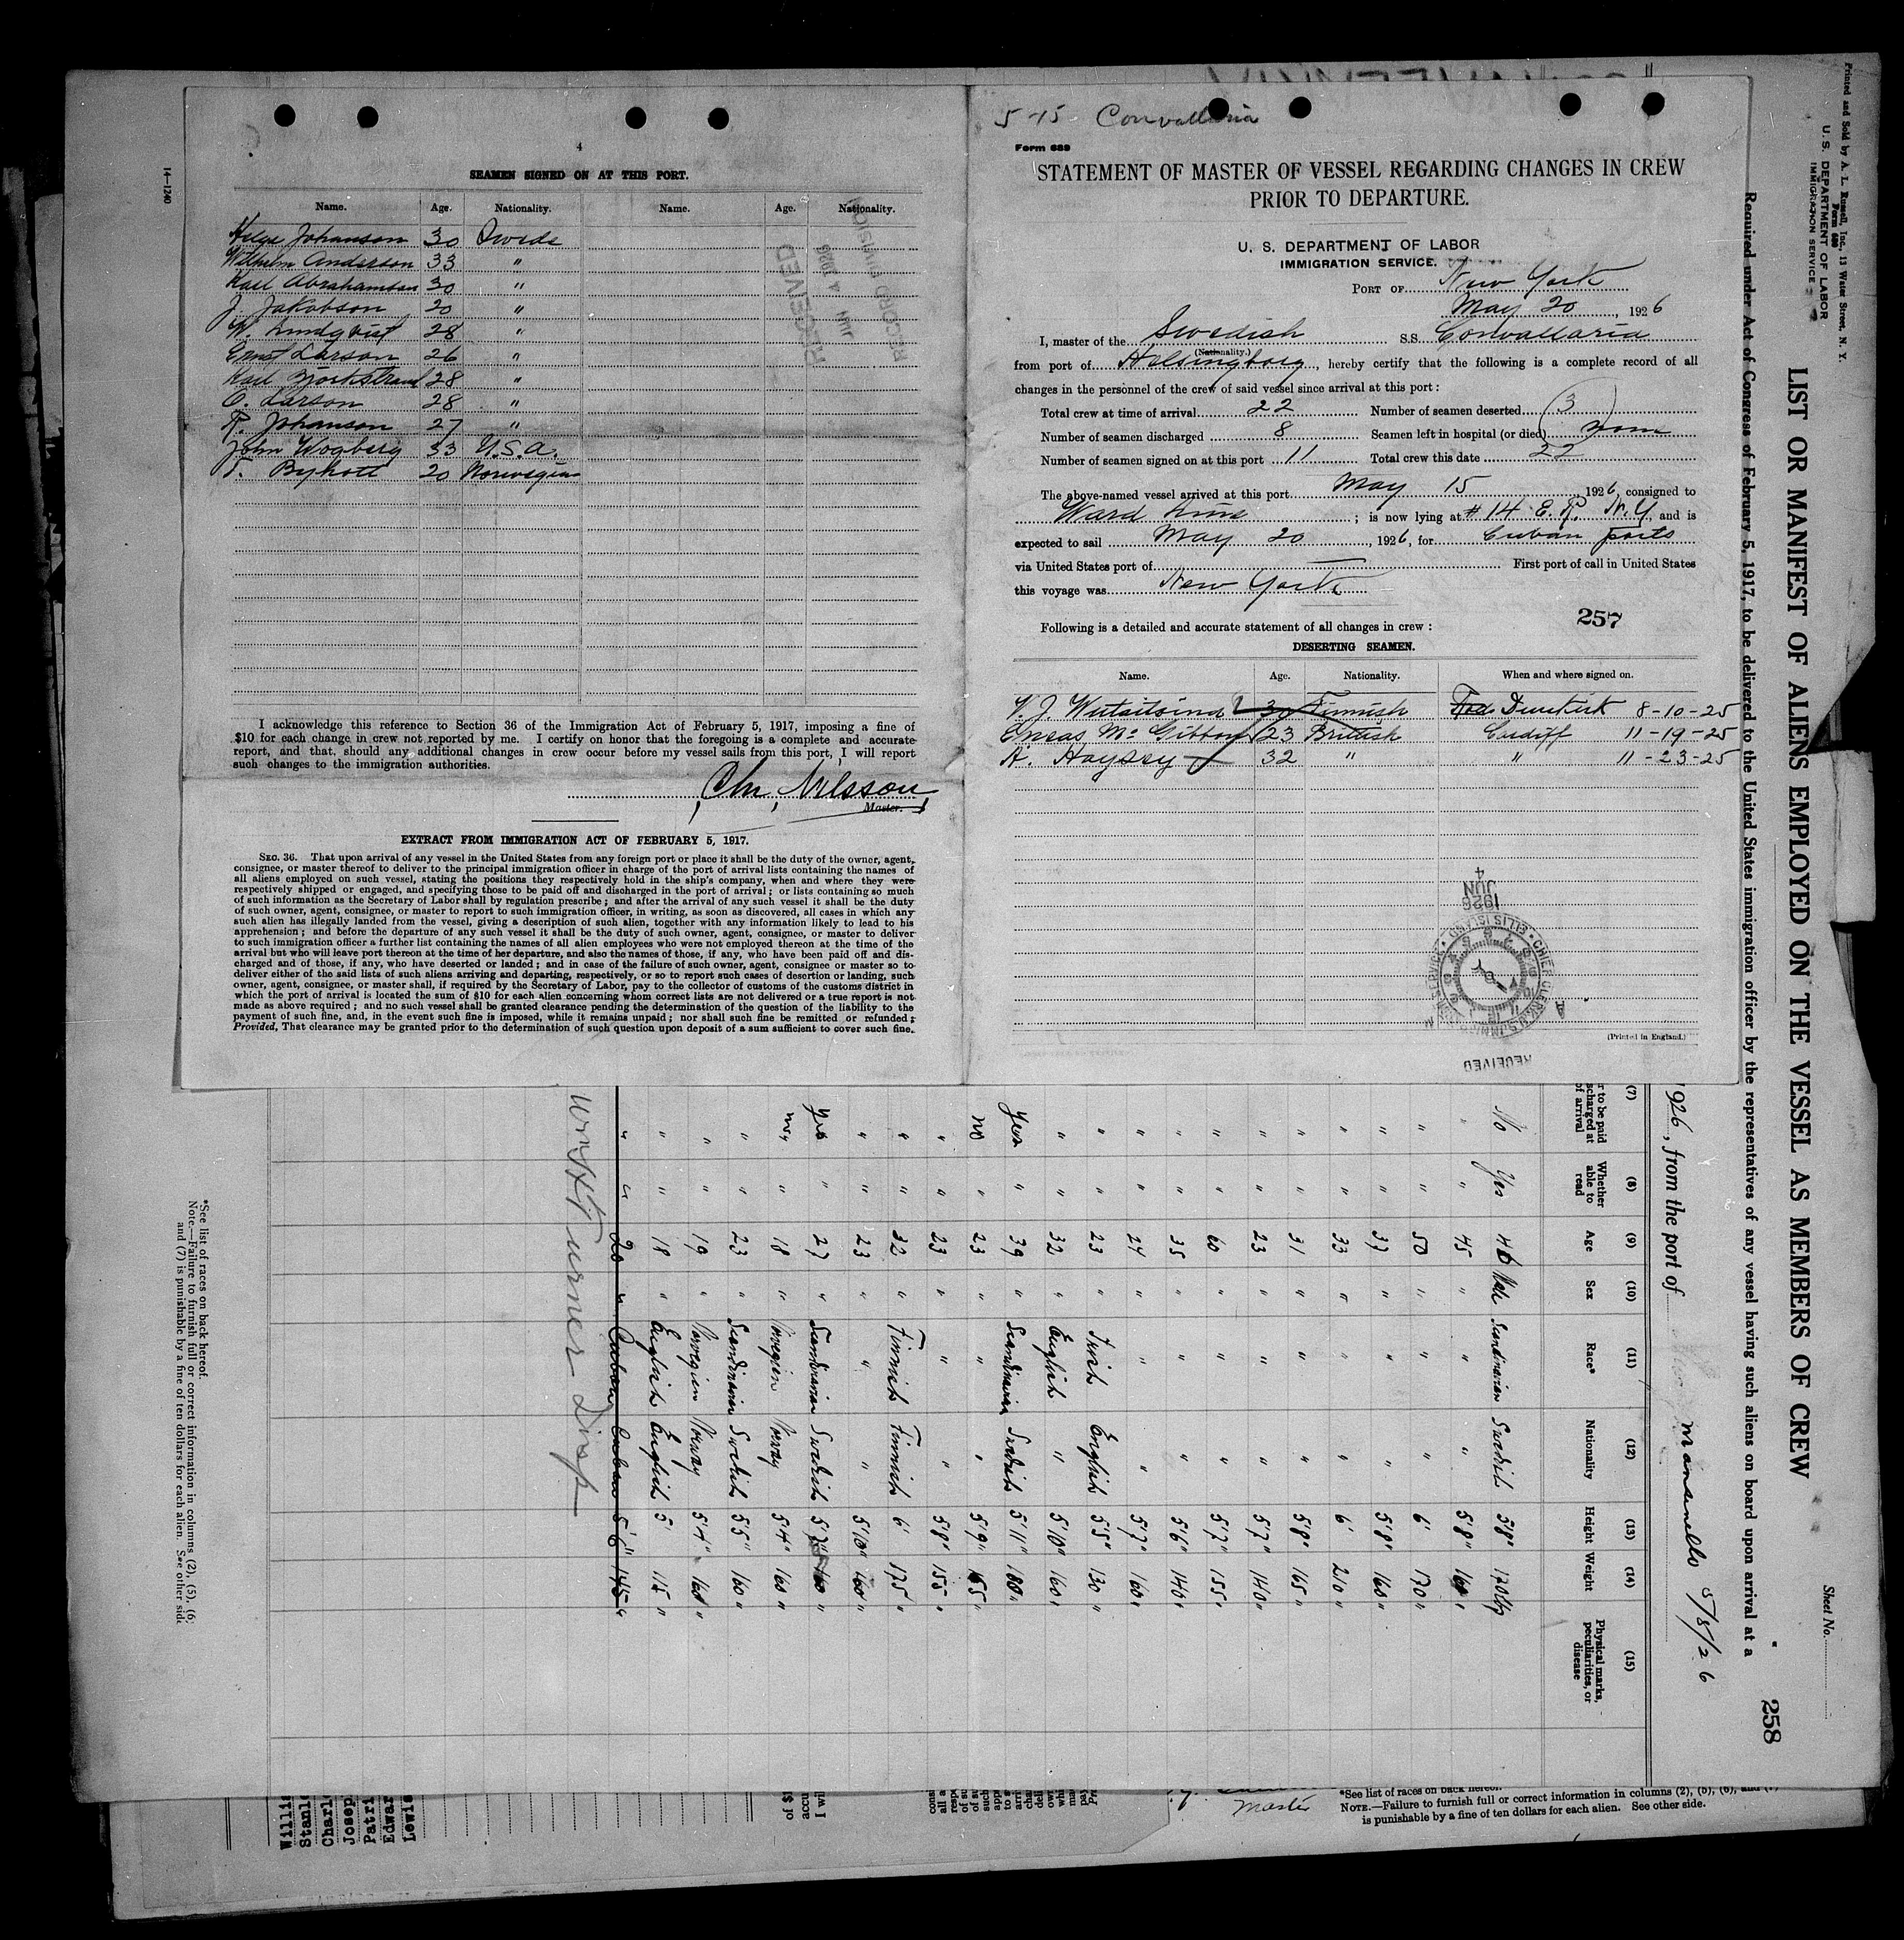 4
SEAMEN SIGNED ON AT THIS PORT.
Name. Age. Nationality. Name. Age. Nationality.
Helge Johanson 30 Swede
Wilhelm Anderson 33 "
Karl Abrahamson 30 "
J. Jakobson 20 "
W. Lundqvist 28 "
Ernst Larson 26 "
Karl Bjorkstrand 28 "
O. Larson 28 "
R. Johanson 27 "
John Wogberg 33 U.S.A.
T. 20 Norwegian
RECEIVED
JUN 4 1926
RECORD DIVISION
I acknowledge this reference to Section 36 of the Immigration Act of February 5, 1917, imposing a fine of
$10 for each change in crew not reported by me. I certify on honor that the foregoing is a complete and accurate
report, and that, should any additional changes in crew occur before my vessel sails from this port, I will report
such changes to the immigration authorities.
Chr. Nilsson
Master.
EXTRACT FROM IMMIGRATION ACT OF FEBRUARY 5, 1917.
SEC. 36. That upon arrival of any vessel in the United States from any foreign port or place it shall be the duty of the owner, agent,
consignee, or master thereof to deliver to the principal immigration officer in charge of the port of arrival lists containing the names of
all aliens employed on such vessel, stating the positions they respectively hold in the ship's company, when and where they were
respectively shipped or engaged, and specifying those to be paid off and discharged in the port of arrival; or lists containing so much
of such information as the Secretary of Labor shall by regulation prescribe; and after the arrival of any such vessel it shall be the duty
of such owner, agent, consignee, or master to report to such immigration officer, in writing, as soon as discovered, all cases in which any
such alien has illegally landed from the vessel, giving a description of such alien, together with any information likely to lead to his
apprehension; and before the departure of any such vessel it shall be the duty of such owner, agent, consignee, or master to deliver
to such immigration officer a further list containing the names of all alien employees who were not employed thereon at the time of the
arrival but who will leave port thereon at the time of her departure, and also the names of those, if any, who have been paid off and dis-
charged and of those, if any, who have deserted or landed; and in case of the failure of such owner, agent, consignee or master so to
deliver either of the said lists of such aliens arriving and departing, respectively, or so to report such cases of desertion or landing, such
owner, agent, consignee, or master shall, if required by the Secretary of Labor, pay to the collector of customs of the customs district in
which the port of arrival is located the sum of $10 for each alien concerning whom correct lists are not delivered or a true report is not
made as above required; and no such vessel shall be granted clearance pending the determination of the question of the liability to the
payment of such fine, and, in the event such fine is imposed, while it remains unpaid; nor shall such fine be remitted or refunded;
Provided, That clearance may be granted prior to the determination of such question upon deposit of a sum sufficient to cover such fine.
14—1240
5-15 Convallaria
Form 689
STATEMENT OF MASTER OF VESSEL REGARDING CHANGES IN CREW
PRIOR TO DEPARTURE.
U. S. DEPARTMENT OF LABOR
IMMIGRATION SERVICE.
PORT OF New York
May 20, 1926
I, master of the Swedish S.S. Convallaria
(Nationality.)
from port of Helsingborg, hereby certify that the following is a complete record of all
changes in the personnel of the crew of said vessel since arrival at this port:
Total crew at time of arrival 22 Number of seamen deserted 3
Number of seamen discharged 8 Seamen left in hospital (or died) none
Number of seamen signed on at this port 11 Total crew this date 22
The above-named vessel arrived at this port May 15 1926, consigned to
Ward Line; is now lying at # 14 E. R. N.Y. and is
expected to sail May 20, 1926, for Cuban ports
via United States port of First port of call in United States
this voyage was New York
257
Following is a detailed and accurate statement of all changes in crew:
DESERTING SEAMEN.
Name. Age. Nationality. When and where signed on.
V. J. 30 Finnish Dunkirk 8-10-25
Eneas Mc Gibbon 23 British Cardiff 11-19-25
A. Hayssey 32 " " 11-23-25
1926
JUN
4
CHIEF CLERK, U.S. IMMIGRATION SERVICE, ELLIS ISLAND
RECEIVED
(Printed in England.)
Printed and Sold by A. L. Russell, Inc., 13 Water Street, N. Y.
Form 689
U. S. DEPARTMENT OF LABOR
IMMIGRATION SERVICE
Sheet No.
LIST OR MANIFEST OF ALIENS EMPLOYED ON THE VESSEL AS MEMBERS OF CREW
258
Required under Act of Congress of February 5, 1917, to be delivered to the United States immigration officer by the representatives of any vessel having such aliens on board upon arrival at a
1926, from the port of Manzanillo 5/8/26
(7) (8) (9) (10) (11) (12) (13) (14) (15)
r to be paid scharged at of arrival Whether able to read Age Sex Race* Nationality Height Weight Physical marks, peculiarities, or disease
No Yes 46 Male Scandinavian Swedish 5'8" 170 lbs
" " 45 " " " 5'8" 160 "
" " 50 " " " 6' 170 "
" " 37 " " " 5'8" 160 "
" " 33 " " " 6' 210 "
" " 31 " " " 5'8" 165 "
" " 23 " " " 5'7" 140 "
" " 60 " " " 5'7" 155 "
" " 35 " " " 5'6" 140 "
" " 24 " " " 5'7" 160 "
" " 23 " Irish English 5'5" 130 "
" " 32 " English " 5'10" 160 "
Yes " 39 " Scandinavian Swedish 5'11" 180 "
no " 23 " " " 5'9" 155 "
" " 23 " " " 5'8" 155 "
" " 32 " Finnish Finnish 6' 175 "
" " 23 " " " 5'10" 160 "
Yes " 27 " Scandinavian Swedish 5'7" 160 "
no " 18 " Norvegien Norway 5'4" 160 "
" " 23 " Scandinavian Swedish 5'5" 160 "
" " 19 " Norvegien Norway 5'4" 160 "
" " 18 " English English 5' 115 "
" " 20 " Cuban Cuban 5'6" 145 "
Wm H Turner Insp
*See list of races on back hereof.
Note.—Failure to furnish full or correct information in columns (2), (5), (6)
and (7) is punishable by a fine of ten dollars for each alien. See other side
Willia
Stanle
Charle
Josep
Patri
Edwar
Lewis
of $1
accu
I wil
Master
*See list of races on back hereof.
NOTE.—Failure to furnish full or correct information in columns (2), (5), (6), and (7)
is punishable by a fine of ten dollars for each alien. See other side.